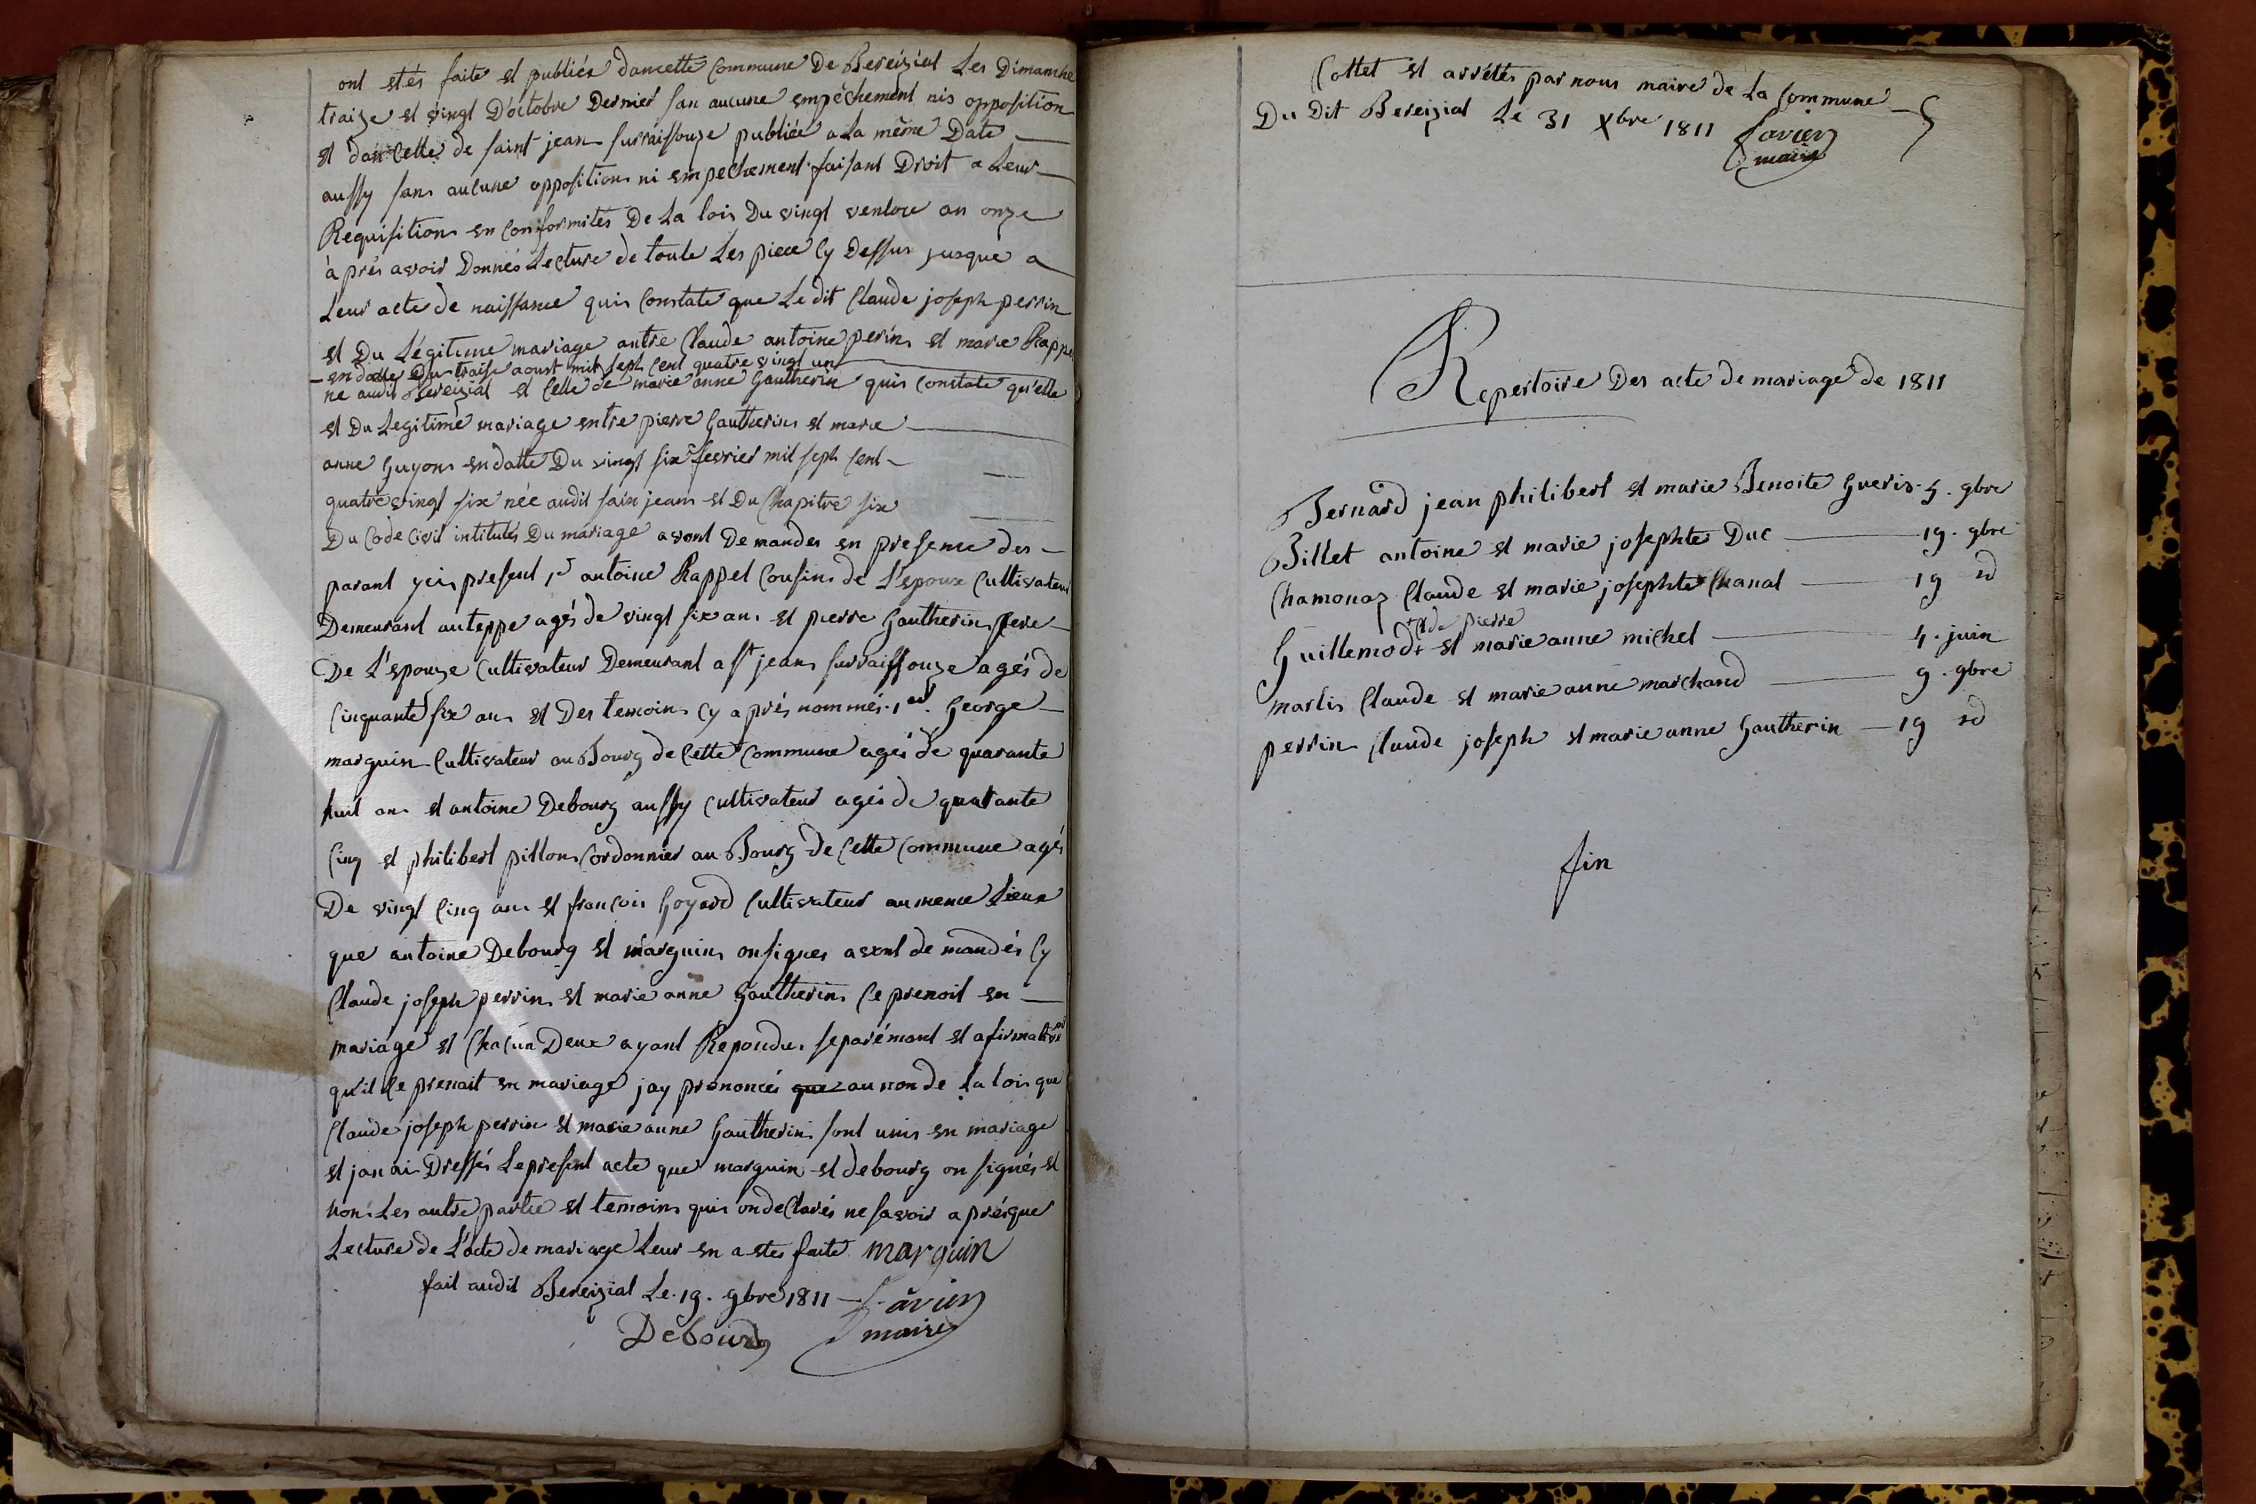 ont etés faite et publiée dancette commune De Bereizial Les Dimanche
traize et vingt D'octobre Dernier san aucune empêchement nis opposition
et dancette de saint jean surraissouze publiée a La même Date
aussy sans aucune opposition ni empechement faisant Droit a Leur
Requisition en conformités De La lois Du vingt ventose an onze
à prés avoir Donnés Lecture de toute Les piece Cy Dessus jusque a
Leur acte de naissance quis constate que Le dit Claude joseph perrin
et Du Légitime mariage antre Claude antoine perin et marie Rappe
- en datte Du traise aoust mil seph cent quatre vingt un
ne audit Bereizial et celle de marie anne Gautherin quis constate qu'elle
et Du Legitime mariage entre pierre Gautherin et marie
anne Guyon en datte Du vingt six fevrier mil seph cent
quatre vingt six née audit sain jean et Du Chapitre six
Du Code Civil intitulés Du mariage avont Demander en presence des
parant ycis present, 1r antoine Rappet Cousin de L'epoux Cultivateur
Demeurant auteppe agés de vingt six an et pierre Gautherin pere
De L'epouze Cultivateur Demeurant a st jean surraissouze agés de
Cinquante six an et Des temoin Cy aprés nommés 1er George
marguin Cultivateur au Bourg de Cette Commune agés de quarante
huit an et antoine Debourg aussy Cultivateur agés de quarante
Cinq et philibert pillon Cordonnier au Bourg de Cette Commune agés
De vingt Cinq an et francois Goyard Cultivateur au meme Lieux
que antoine Debourg et marguin onsignes avont demandés Cy
Claude joseph perrin et marie anne Gautherin Ce prenoit en
mariage et Chacun Deux ayant Repondu separémant et afirmative
qu'il Ce prenait en mariage jay prononcés que au non de La lois que
Claude joseph perrin et marie anne Gautherin sont unis en mariage
et jan ai Dressés Le present acte que marguin et debourg on signés et
non Les autre partie et temoin quis ondeclarés ne savoir a présque
Lecture de L'acte de mariage Leur en a etes faite marguin
fait audit Bereizial Le 19. 9bre 1811 favier
Debourg maire
Cottet et arrêtés par nous maire de La Commune
Du Dit Bereizial Le 31 Xbre 1811 favier
maire
Repertoire Des acte de mariage de 1811
Bernard jean philibert et marie Benoite Gueris 5. 9bre
Billet antoine et marie josephte Duc 19. 9bre
Chamonaz Claude et marie josephte Chanal 19 id
Cde pierre
Guillemod + et marie anne michel 4. juin
marlis Claude et marie anne marchand 9. 9bre
perrin Claude joseph et marie anne Gautherin 19 id
fin